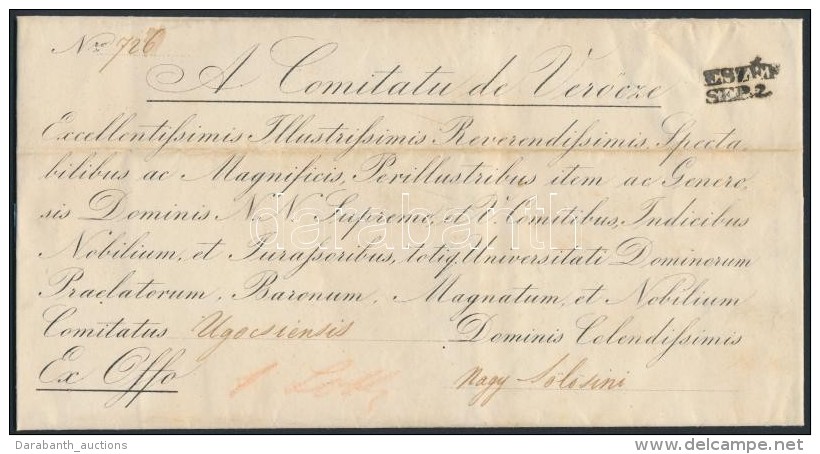 Nro 726
A Comitatu de Verőcze
ESZÉK
SEP. 2
Excellentissimis Illustrissimis Reverendissimis, Specta,
bilibus ac Magnificis, Perillustribus item ac Genero,
sis Dominis N. N. Supremo, et V. Comitibus, Iudicibus
Nobilium, et Jurassoribus, totiq. Universitati Dominorum
Praelatorum, Baronum, Magnatum, et Nobilium
Comitatus Ugocsiensis Dominis Colendissimis
Ex Offo Nagy Szőlősini
darabanth
Darabanth_auctions
delcampe.net